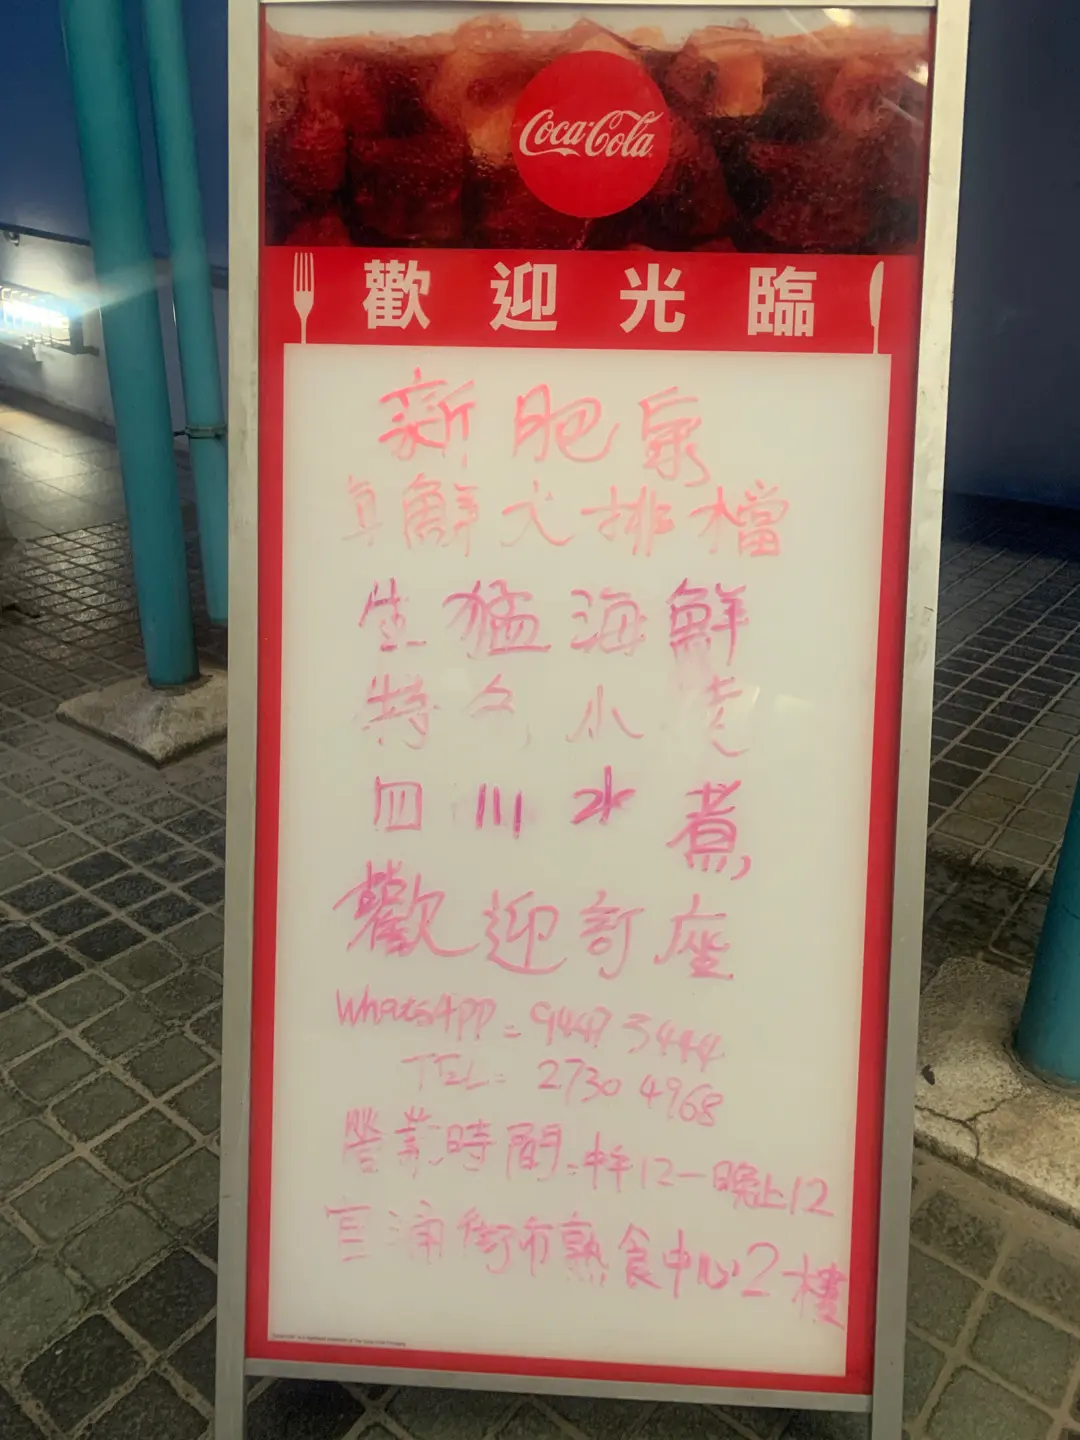 Coca-Cola
歡迎光臨
新肥泉
海鮮大排檔
生猛海鮮
特色小炒
四川水煮
歡迎訂座
WhatsApp: 9447 3444
TEL: 2730 4968
營業時間:中午12-晚上12
官涌街市熟食中心2樓